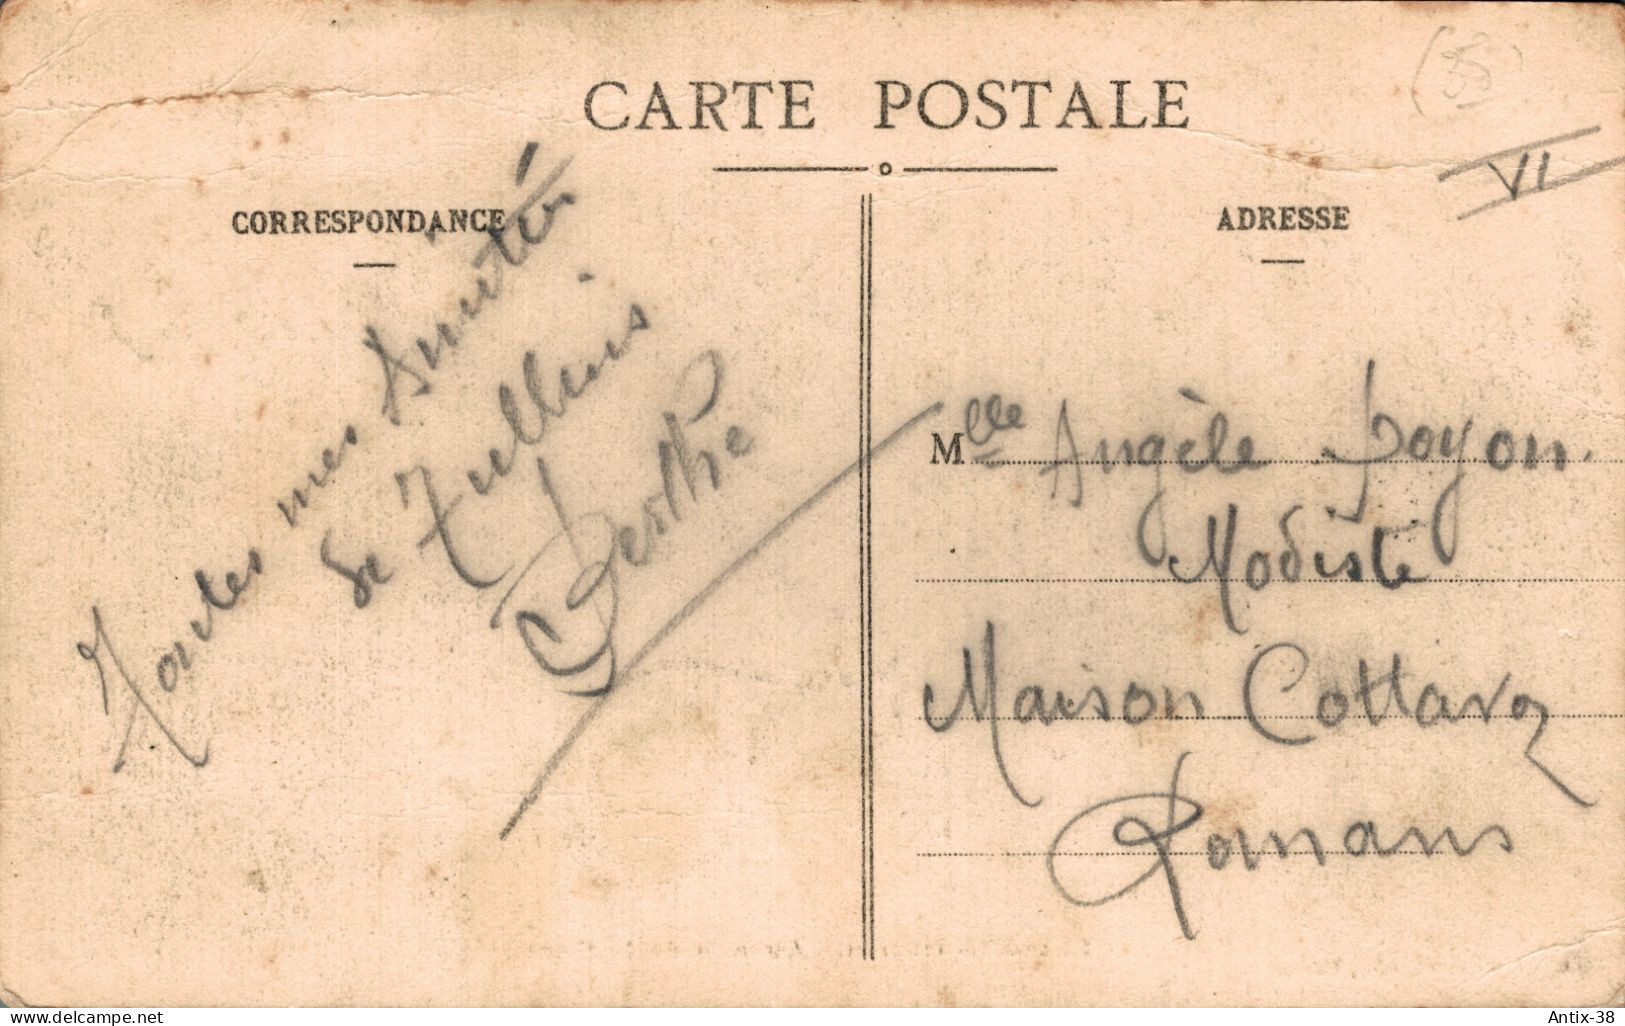 (35)
CARTE POSTALE
VI
CORRESPONDANCE
Toutes mes Amitiés
de Tullins
Berthe
ADRESSE
Mlle Angèle Doyon.
Modiste
Maison Cottaroz
Romans
www.delcampe.net
Antix-38